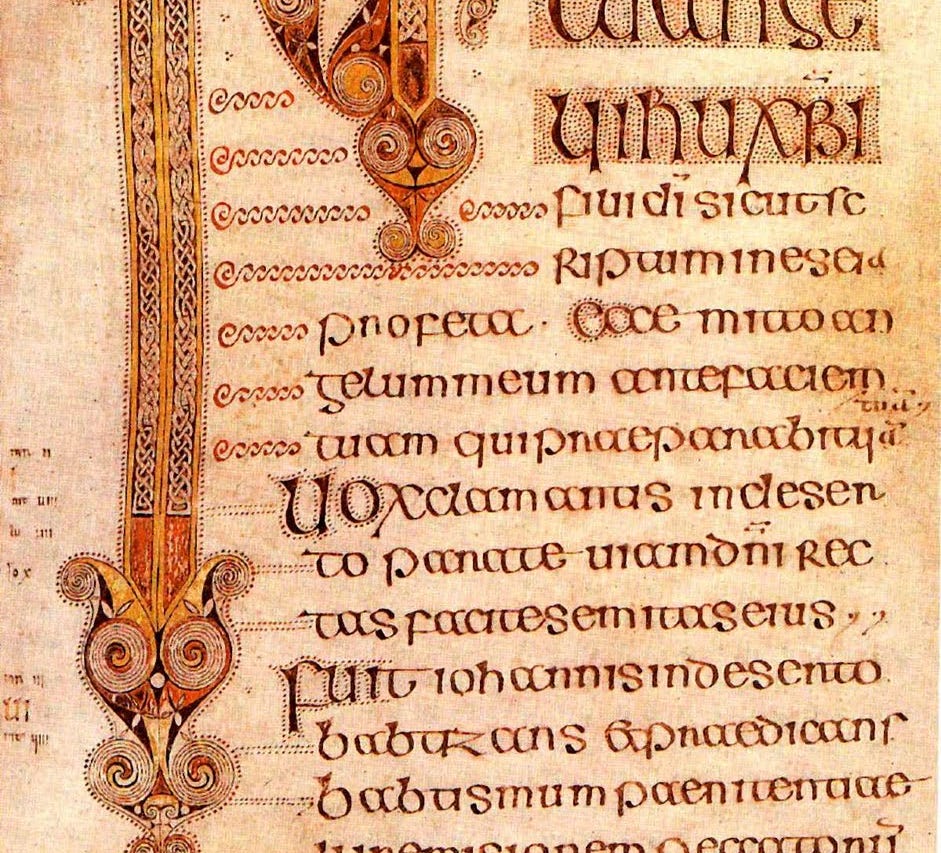 uange
lii ihu xp̄i
fili dī sicut sc
riptum in eseia
profeta · Ecce mitto an
gelum meum ante faciem
tuã
tuam qui praeparabit uiã
Uox clamantis in deser
to parate uiam dn̄i rec
tas facite semitas eius ,,
fuit iohannis in deserto
babtizans & praedicans
babtismum paenitentiae
in remisionem peccatorū